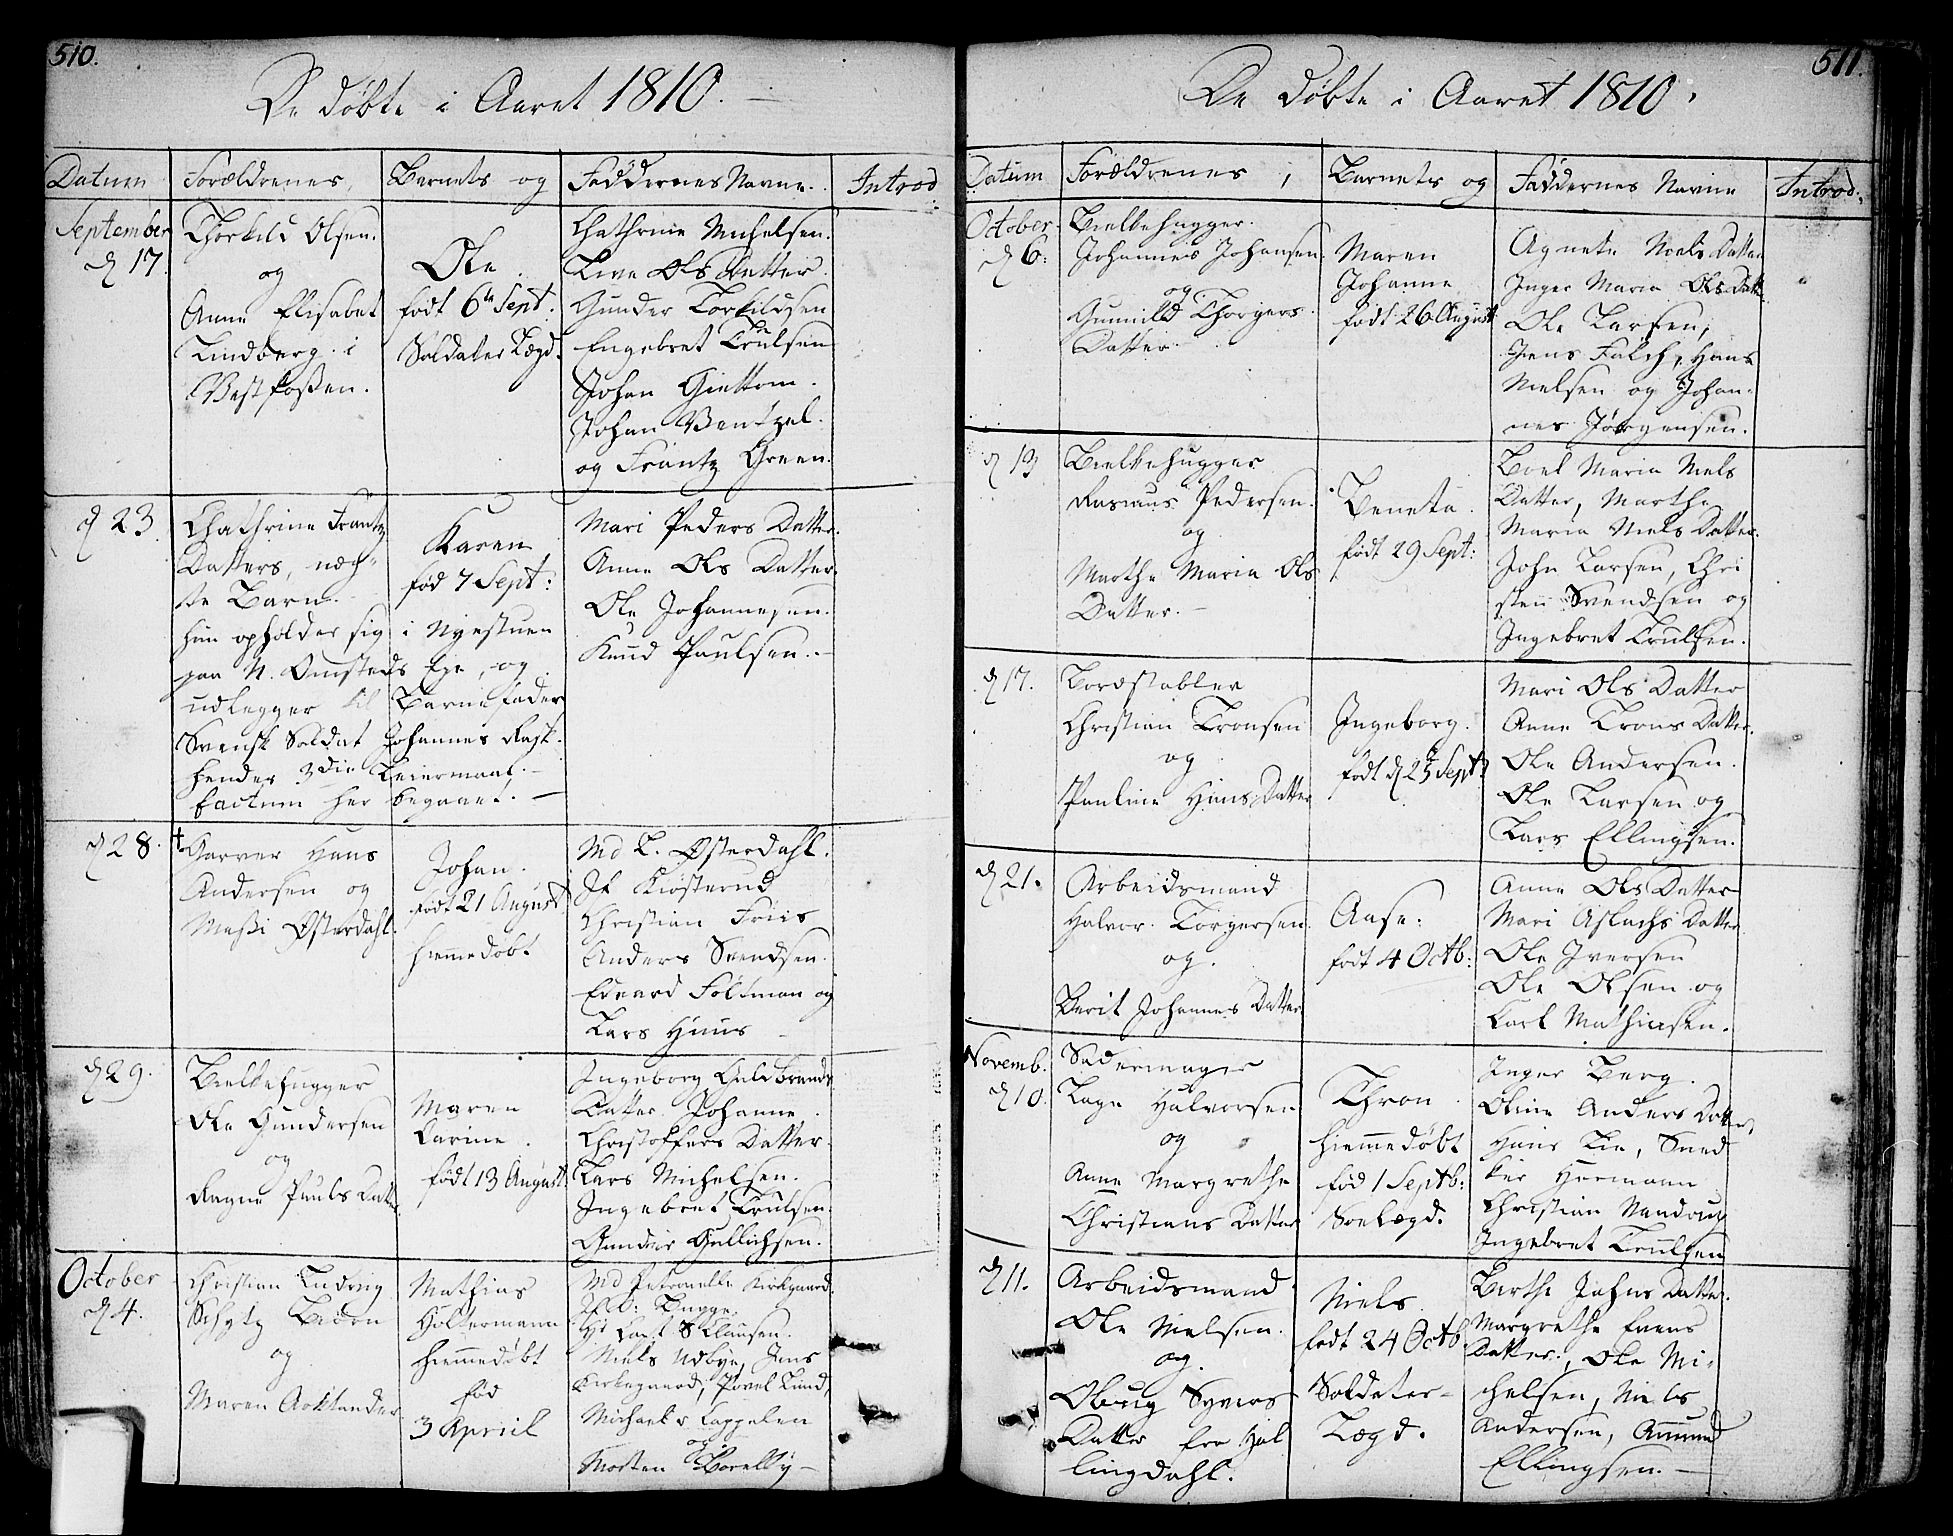 510.
De døbte i Aaret 1810.
Datum Forældrenes Barnets og Faddernes Navne. Introd
September
d 17.
Thorkild Olsen.
og
Anne Elisabet
Lindberg i
Vestfossen.
Ole
født 6te Sept.
Soldater Lægd.
Chathrine Michelsen.
Live Ols Datter
Gunder Torkildsen
Engebret Trulsen
Johan Giettom.
Johan Wentzel.
og Frantz Green.
d 23.
Chathrine Frantz
Datters, uæg-
te Barn.
hun opholder sig i Nyestuen
paa N. Omsteds Eye, og
udlegger til Barnefader
Svensk Soldat Johannes Rask.
hendes 3die Leiermaal.
factum her begaaet.
Karen
fød 7 Sept:
Mari Peders Datter.
Anne Ols Datter.
Ole Johannesen.
Knud Paulsen.
d 28.
Garver Hans
Andersen og
Massi Østerdahl.
Johan.
født 21 August
hiemmedøbt
Md L. Østerdahl.
Jf Kiøsterud
Christian Friis
Anders Svendsen.
Edvard Foltman og
Lars Huus
d 29.
Bielkehugger
Ole Gundersen
og
Ragne Pauls Datter
Maren
Karine.
født 13 August
Ingeborg Guldbrands
Datter Johanne
Christoffers Datter.
Lars Michelsen.
Ingebret Trulsen.
Gunder Gullichsen.
October
d 4.
Christian Ludvig
Schytz
og
Maren
Mathias
Holtermann
hiemmedøbt
fød
3 Apriil
Md Petronelle Kirkgaard.
Bugge.
Clausen.
Niels Udbye, Jens
Kirkegaard, Povel Lund,
Michael v Cappelen
og
Morten
511.
De døbte i Aaret 1810.
Datum Forældrenes, Barnets og Faddernes Navne Introd.
October
d 6.
Bielkehugger.
Johannes Johansen.
og
Gunnild Thorgers
Datter.
Maren
Johanne
født 26 August
Agnete Niels Datter
Inger Maria Ols Datter
Ole Larsen,
Jens Falch, Hans
Nielsen og Johan-
nes Jørgensen.
d 13
Bielkehugger
Rasmus Pedersen.
og
Marthe Maria Ols
Datter.
Beneta.
født 29 Sept:
Boel Maria Niels
Datter, Marthe
Maria Niels Datter.
John Larsen, Chri
sten Svendsen og
Ingebret Trulsen.
d 17.
Bordstabler
Christian Tronsen
og
Pauline Hans Datter
Ingeborg.
født d 25 Sept:
Mari Ols Datter
Anne Trons Datter.
Ole Andersen.
Ole Larsen og
Lars Ellingsen.
d 21.
Arbeidsmand
Halvor Torgersen.
og.
Berit Johannes Datter
Aase.
født 4 Octb:
Anne Ols Datter
Mari Aslachs Datter
Ole Iversen
Ole Olsen og
Carl Mathiesen.
Novemb.
d 10.
Sadermager
Lage Halvorsen
og
Anne Margrethe
Christians Datter
Thron
hiemmedøbt
fød 1 Septb:
Søelægd.
Inger Berg.
Oline Anders Datter,
Hans Lie, Sned
ker Hermann
Christian
Ingebret Trulsen
d 11.
Arbeidsmand.
Ole Nielsen.
og.
Syvers
Datter fra Hal
lingdahl.
Niels
født 24 Octb.
Soldater-
Lægd.
Berthe Johns Datter.
Margrethe Evens
Datter, Ole Mi-
chelsen, Niels
Andersen, Amund
Ellingsen.